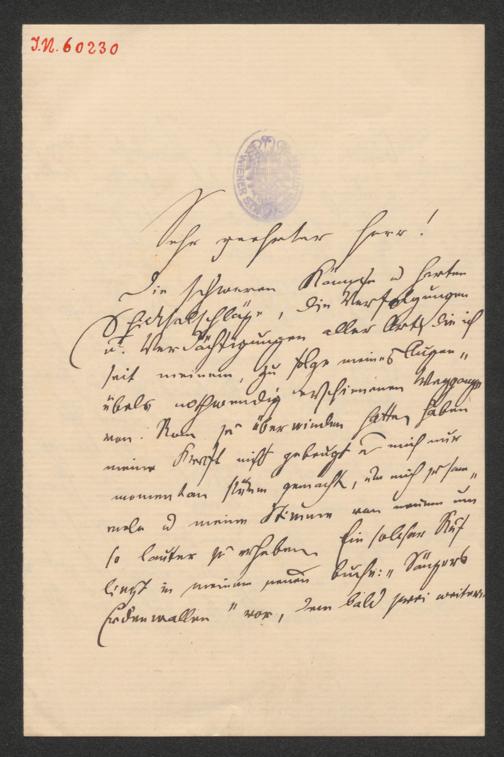 J.N. 60230
WIENER
Sehr geehrter Herr!
Die schweren Kämpfe u harten
Schicksalschläge, die Verfolgungen
u. Verdächtigungen aller Art, die ich
seit meinem, zu folge meines Augen„
übels nothwendig erschienenen Weggange
von Rom zu überwinden hatte, haben
meine Kraft nicht gebeugt u mich nur
momentan stumm gemacht, um mich zu sam„
meln u meine Stimme von neuem um
so lauter zu erheben. Ein solcher Ruf
liegt in meinem neuen Buche: „Sängers
Erdenwallen" vor, dem bald zwei weitere